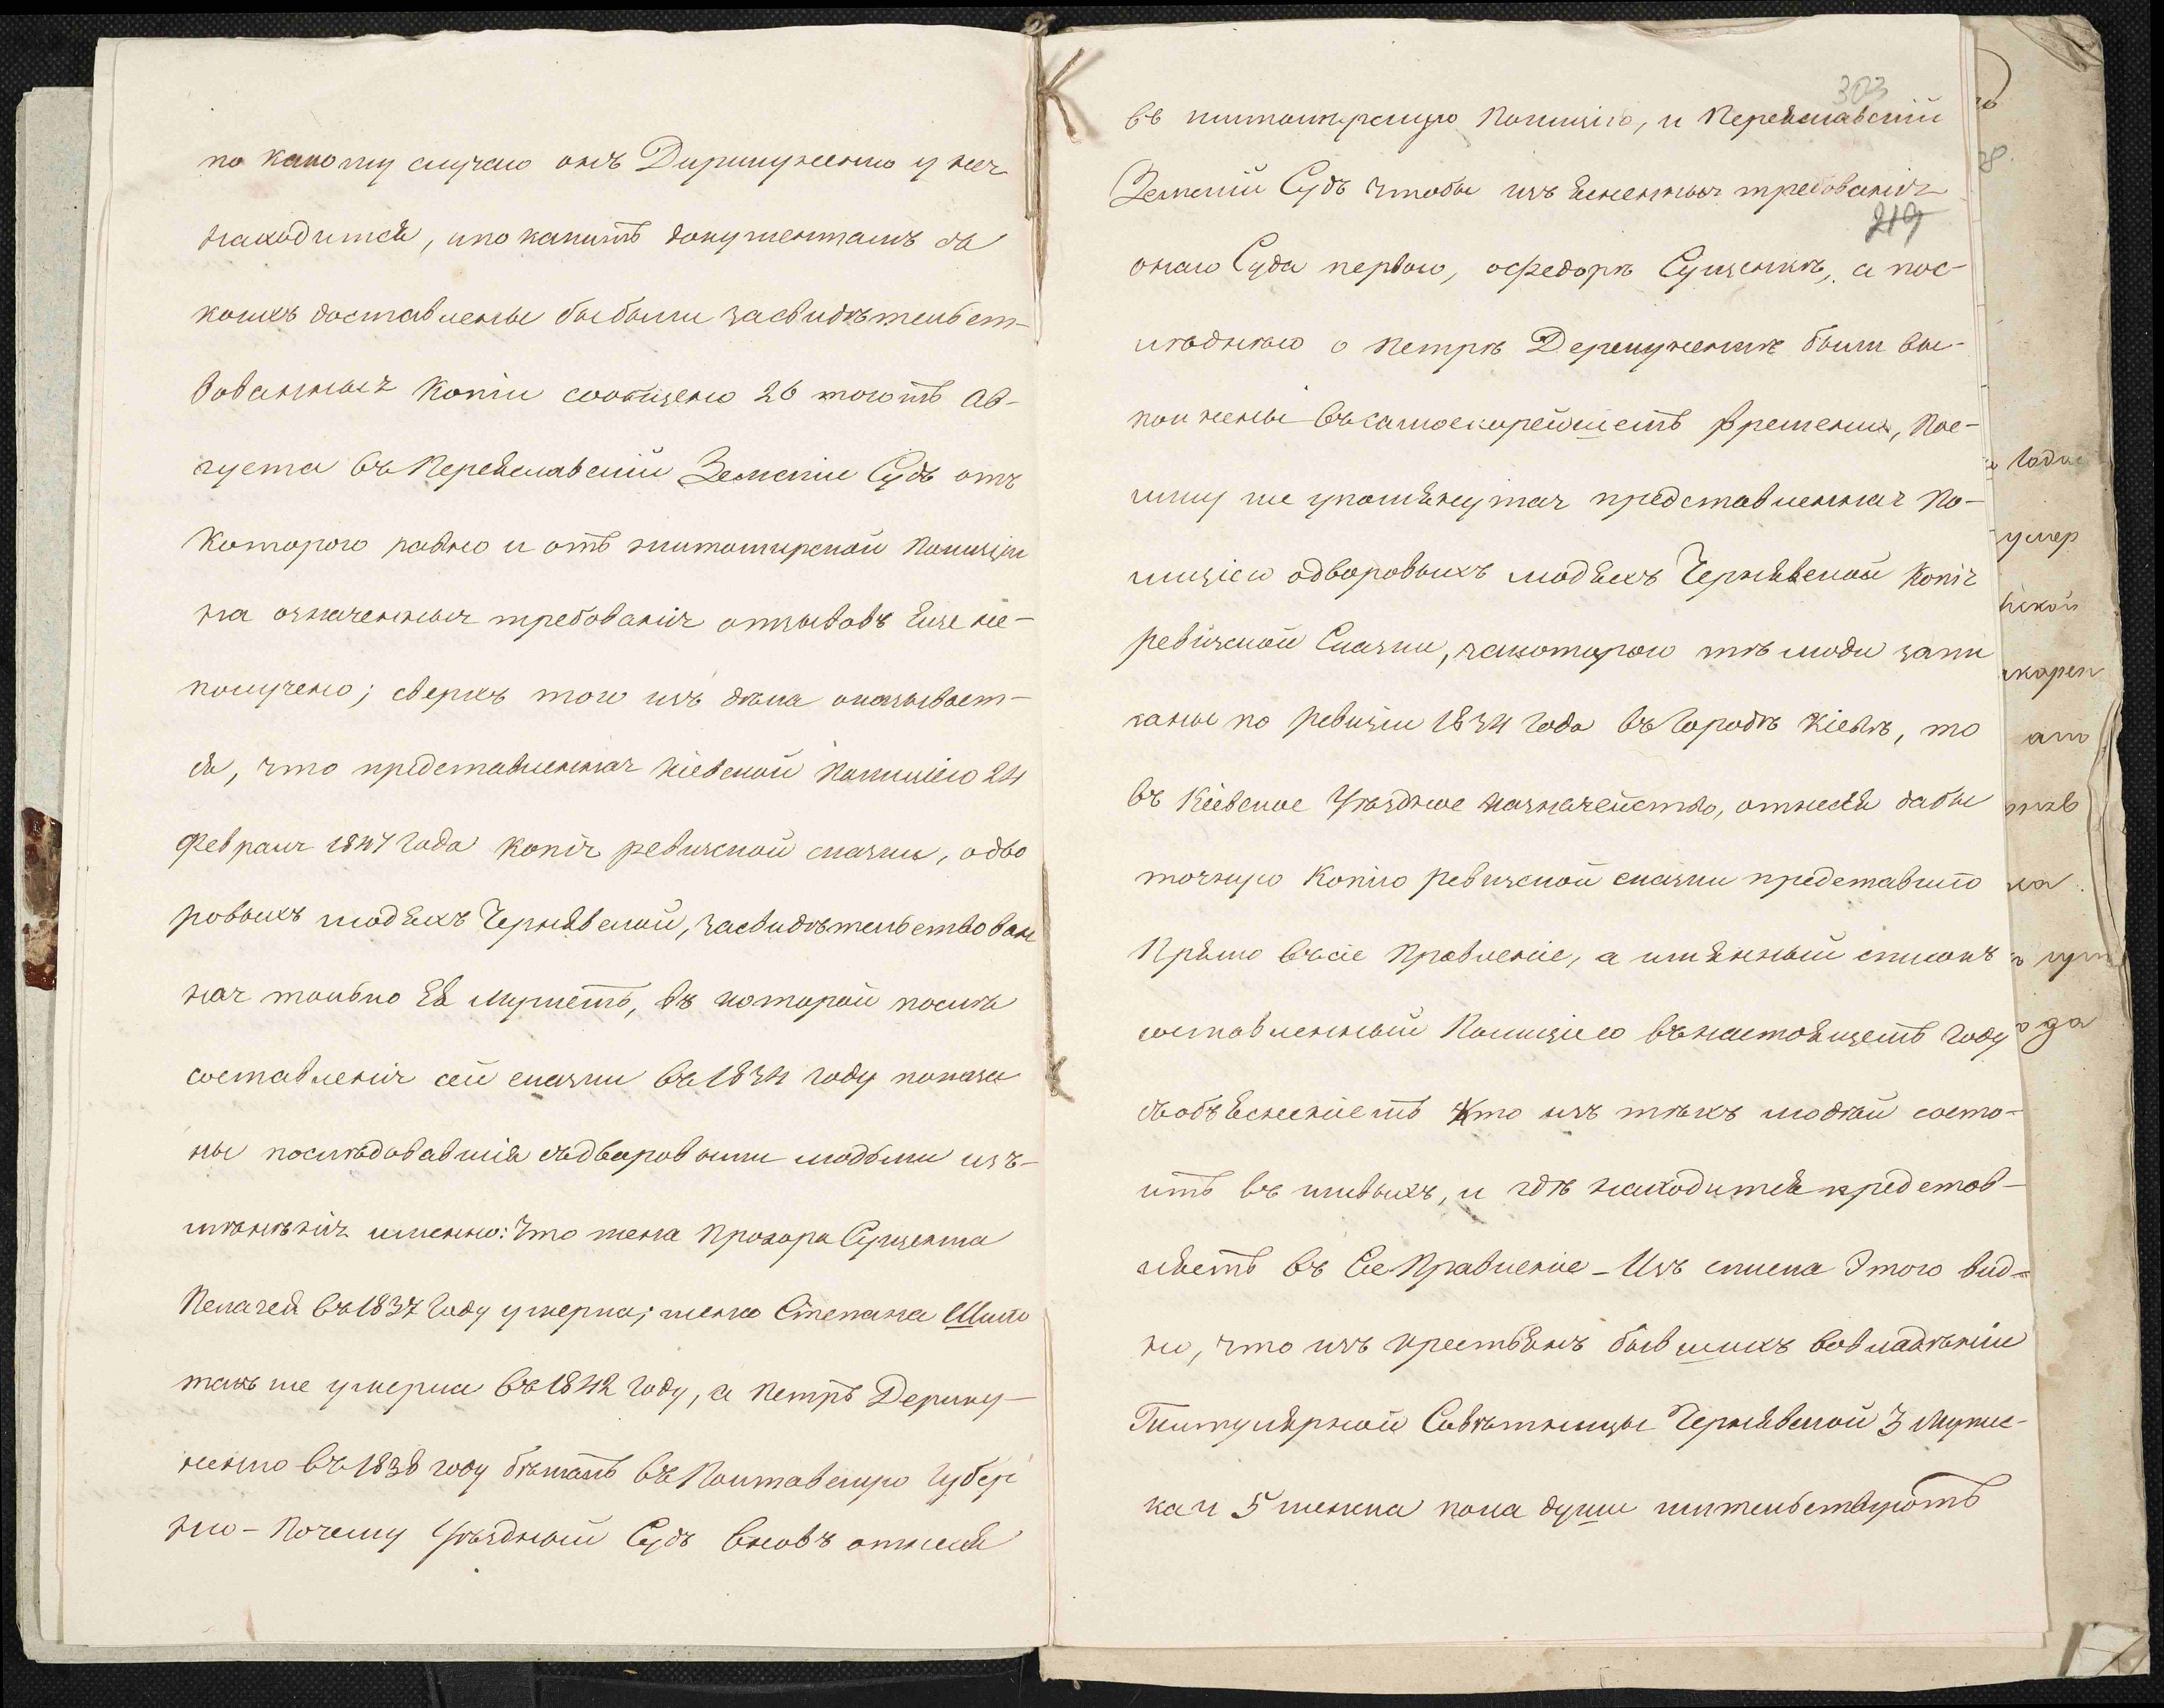 по какому случаю онъ Диркуженко у нея
находится, и по какимъ документамъ съ
коихъ доставлены бы были засвидѣтельст-
вованныя копіи сообщено 26 тогожъ Ав-
густа въ Переяславскій Земскій Судъ отъ
котораго равно и отъ житомирской Полиціи
на означенныя требованія отзывовъ еще не-
получено; сверхъ того изъ дѣла оказывает-
ся, что представленная кіевской Полиціею 24
февраля 1847 года копія ревизской сказки, о дво
ровыхъ людяхъ Чернявской, засвидѣтельствован
ная только Ея мужемъ, въ которой послѣ
составленія сей сказки въ 1834 году показа
ны послѣдовавшія съ дворовыми людьми из-
мѣнѣнія именно: что жена Прохора Сущенка
Пелагея въ 1837 году умерла; жена Степана
такъ же умерла въ 1842 году, а Петръ Держу-
женко въ 1838 году бѣжалъ въ Полтавскую губер
нію - Почему Уѣздный Судъ вновь отнеся
303
въ житомирскую Полицію, и Переяславскій
Земскій Судъ чтобы изъясненныя требованія
219
онаго Суда перваго, о Федорѣ Сущенкѣ, а пос-
лѣдняго о Петрѣ Держуженкѣ были вы-
полнены въ самоскорѣйшемъ времени, Пое-
лику же упомянутая представленная По-
лиціею о дворовыхъ людяхъ Чернявской копія
ревизской Сказки, за которою тѣ люди запи
саны по ревизіи 1834 года въ городѣ Кіевѣ, то
въ Кіевское Уѣздное казначейство, отнеся дабы
точную копію ревизской сказки представило
Прямо въ сіе Правленіе, а имянный списокъ
составленный Полиціею въ настоящемъ году
съ объясненіемъ кто изъ тѣхъ людей состо-
итъ въ живыхъ, и гдѣ находится представ-
ляетъ въ Сіе Правленіе - Изъ списка Этого вид-
но, что изъ крестьянъ бывшихъ во владѣніи
Титулярной Совѣтницы Чернявской 3 мужес-
ка и 5 женска пола души жительствуютъ
года
умер
нской
скорей